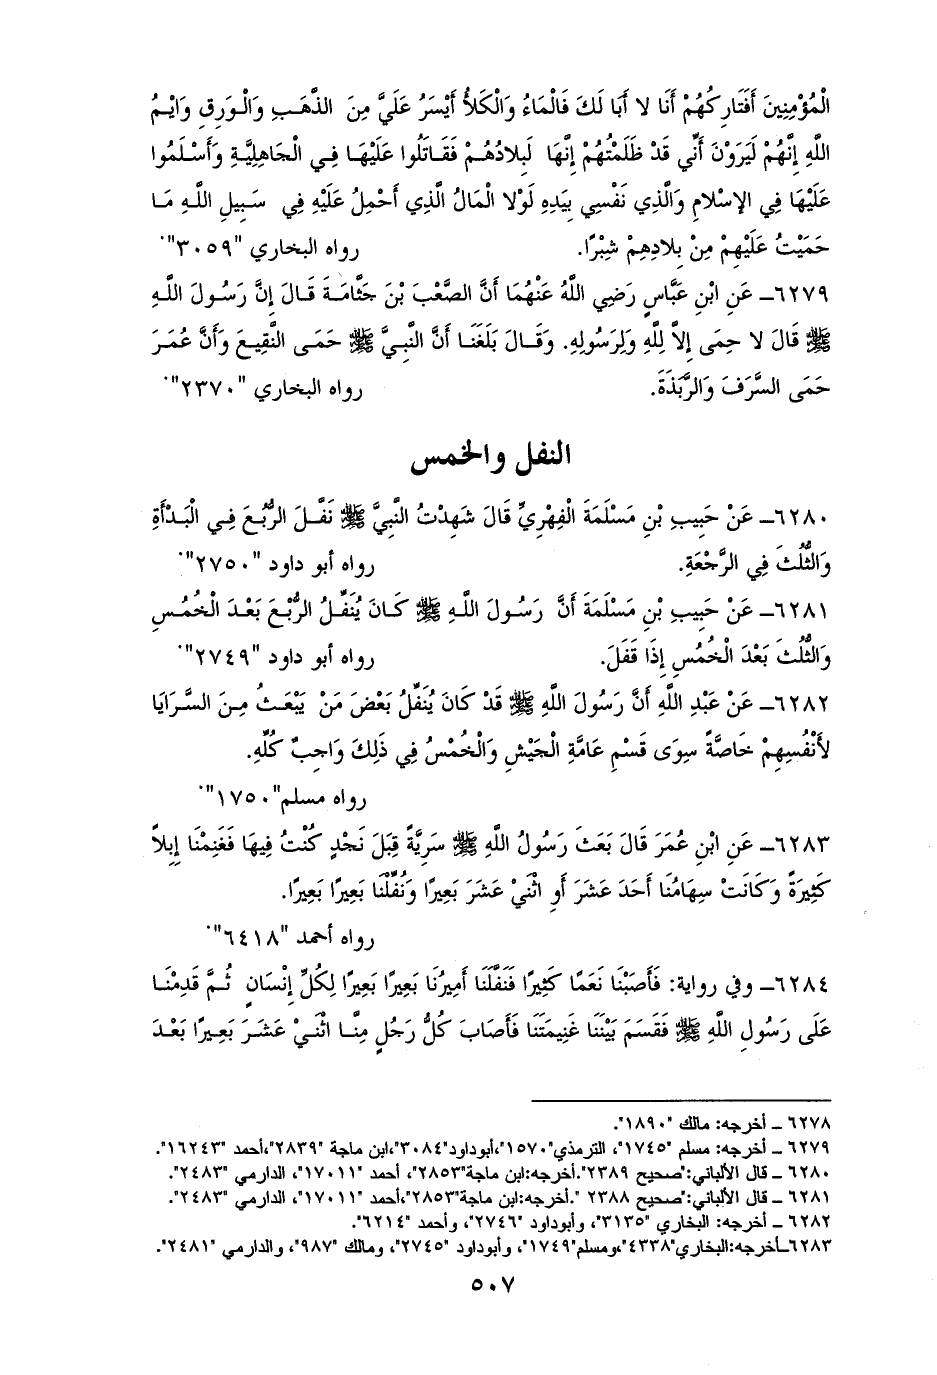 الْمُؤْمِنِينَ أَفَتَارِكُهُمْ أَنَا لا أَبَا لَكَ فَالْمَاءُ وَالْكَلأُ أَيْسَرُ عَلَيَّ مِنَ الذَّهَبِ وَالْوَرِقِ وَايْمُ
اللَّهِ إِنَّهُمْ لَيَرَوْنَ أَنِّي قَدْ ظَلَمْتُهُمْ إِنَّهَا لَبِلادُهُمْ فَقَاتَلُوا عَلَيْهَا فِي الْجَاهِلِيَّةِ وَأَسْلَمُوا
عَلَيْهَا فِي الإِسْلامِ وَالَّذِي نَفْسِي بِيَدِهِ لَوْلا الْمَالُ الَّذِي أَحْمِلُ عَلَيْهِ فِي سَبِيلِ اللَّهِ مَا
حَمَيْتُ عَلَيْهِمْ مِنْ بِلادِهِمْ شِبْرًا. رواه البخاري "٣٠٥٩".
٦٢٧٩ـ عَنِ ابْنِ عَبَّاسٍ رَضِي اللَّهُ عَنْهُمَا أَنَّ الصَّعْبَ بْنَ جَثَّامَةَ قَالَ إِنَّ رَسُولَ اللَّهِ
ﷺ قَالَ لا حِمَى إِلاَّ لِلَّهِ وَلِرَسُولِهِ. وَقَالَ بَلَغَنَا أَنَّ النَّبِيَّ ﷺ حَمَى النَّقِيعَ وَأَنَّ عُمَرَ
حَمَى السَّرَفَ وَالرَّبَذَةَ. رواه البخاري "٢٣٧٠".
النفل والخمس
٦٢٨٠ـ عَنْ حَبِيبِ بْنِ مَسْلَمَةَ الْفِهْرِيِّ قَالَ شَهِدْتُ النَّبِيَّ ﷺ نَفَّلَ الرُّبُعَ فِي الْبَدْأَةِ
وَالثُّلُثَ فِي الرَّجْعَةِ. رواه أبو داود "٢٧٥٠".
٦٢٨١ـ عَنْ حَبِيبِ بْنِ مَسْلَمَةَ أَنَّ رَسُولَ اللَّهِ ﷺ كَانَ يُنَفِّلُ الرُّبْعَ بَعْدَ الْخُمُسِ
وَالثُّلُثَ بَعْدَ الْخُمُسِ إِذَا قَفَلَ. رواه أبو داود "٢٧٤٩".
٦٢٨٢ـ عَنْ عَبْدِ اللَّهِ أَنَّ رَسُولَ اللَّهِ ﷺ قَدْ كَانَ يُنَفِّلُ بَعْضَ مَنْ يَبْعَثُ مِنَ السَّرَايَا
لأَنْفُسِهِمْ خَاصَّةً سِوَى قَسْمِ عَامَّةِ الْجَيْشِ وَالْخُمْسُ فِي ذَلِكَ وَاجِبٌ كُلِّهِ.
رواه مسلم"١٧٥٠".
٦٢٨٣ـ عَنِ ابْنِ عُمَرَ قَالَ بَعَثَ رَسُولُ اللَّهِ ﷺ سَرِيَّةً قِبَلَ نَجْدٍ كُنْتُ فِيهَا فَغَنِمْنَا إِبِلاً
كَثِيرَةً وَكَانَتْ سِهَامُنَا أَحَدَ عَشَرَ أَوِ اثْنَيْ عَشَرَ بَعِيرًا وَنُفِّلْنَا بَعِيرًا بَعِيرًا.
رواه أحمد "٦٤١٨".
٦٢٨٤ـ وفي رواية: فَأَصَبْنَا نَعَمًا كَثِيرًا فَنَفَّلَنَا أَمِيرُنَا بَعِيرًا بَعِيرًا لِكُلِّ إِنْسَانٍ ثُمَّ قَدِمْنَا
عَلَى رَسُولِ اللَّهِ ﷺ فَقَسَمَ بَيْنَنَا غَنِيمَتَنَا فَأَصَابَ كُلُّ رَجُلٍ مِنَّا اثْنَيْ عَشَرَ بَعِيرًا بَعْدَ
٦٢٧٨ ـ أخرجه: مالك "١٨٩٠".
٦٢٧٩ ـ أخرجه: مسلم "١٧٤٥"، الترمذي"١٥٧٠"،أبوداود"٣٠٨٤"،ابن ماجة "٢٨٣٩"،أحمد "١٦٢٤٣".
٦٢٨٠ ـ قال الألباني:"صحيح ٢٣٨٩".أخرجه:ابن ماجة"٢٨٥٣"، أحمد "١٧٠١١"، الدارمي "٢٤٨٣".
٦٢٨١ ـ قال الألباني:"صحيح ٢٣٨٨ ".أخرجه:ابن ماجة"٢٨٥٣"،أحمد "١٧٠١١"، الدارمي "٢٤٨٣".
٦٢٨٢ ـ أخرجه: البخاري "٣١٣٥"، وأبوداود "٢٧٤٦"، وأحمد "٦٢١٤".
٦٢٨٣ـأخرجه:البخاري"٤٣٣٨"،ومسلم"١٧٤٩"، وأبوداود "٢٧٤٥"، ومالك "٩٨٧"، والدارمي "٢٤٨١".
٥٠٧